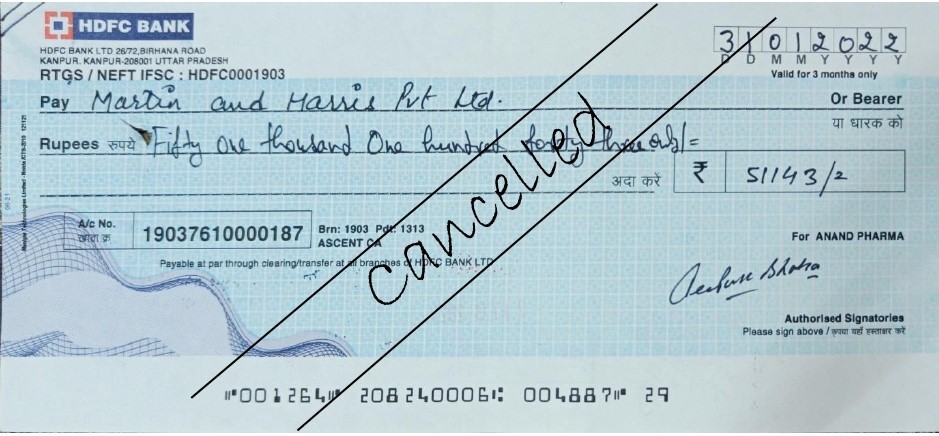 HDFC BANK
HDFC BANK LTD 26/72,BIRHANA ROAD
KANPUR. KANPUR-208001 UTTAR PRADESH
RTGS / NEFT IFSC : HDFC0001903
31012022
D D M M Y Y Y Y
Valid for 3 months only
Pay Martin and Harris Pvt Ltd.
Or Bearer
या धारक को
Rupees रुपये Fifty One thousand One hundred forty three only/=
अदा करें ₹ 51143/=
Cancelled
A/c No.
खाता क्र
19037610000187
Brn: 1903 Pdt: 1313
ASCENT CA
Payable at par through clearing/transfer at all branches of HDFC BANK LTD
For ANAND PHARMA
Authorised Signatories
Please sign above / कृपया यहाँ हस्ताक्षर करें
⑈001264⑈ 208240006⑆ 004887⑈ 29